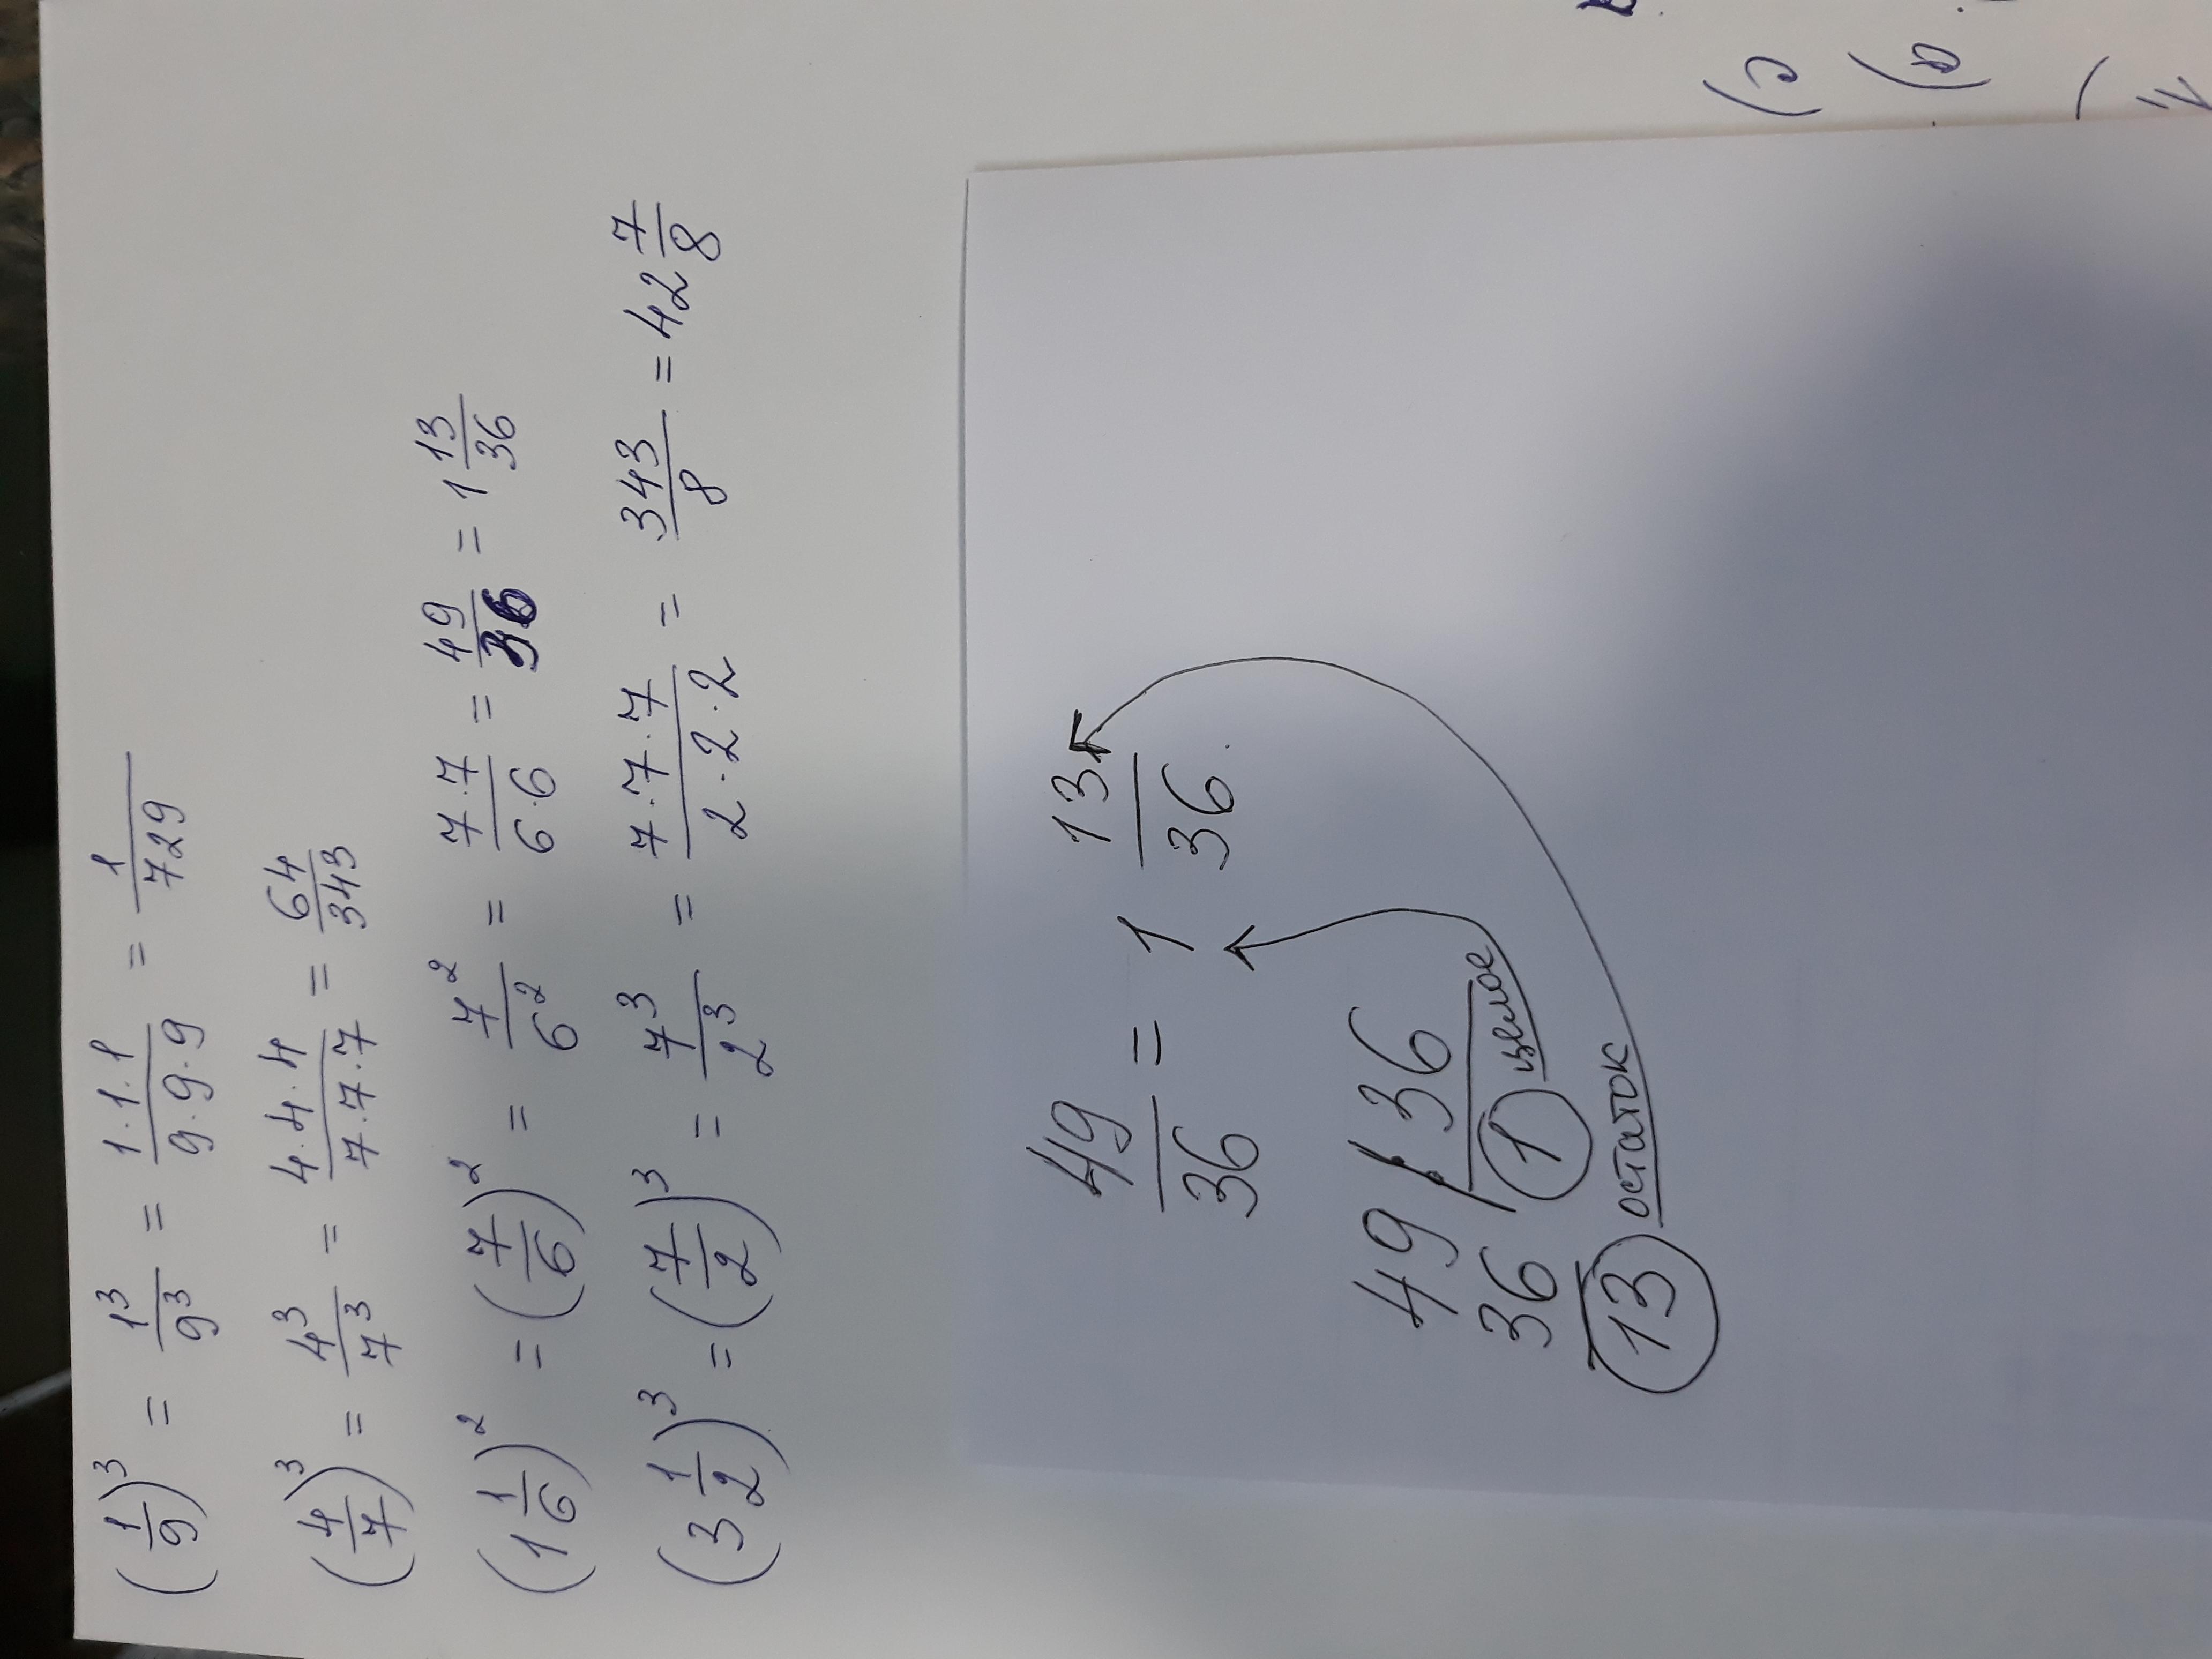 (1/9)³ = 1³/9³ = 1·1·1/9·9·9 = 1/729
(4/7)³ = 4³/7³ = 4·4·4/7·7·7 = 64/343
(1 1/6)² = (7/6)² = 7²/6² = 7·7/6·6 = 49/36 = 1 13/36
(3 1/2)³ = (7/2)³ = 7³/2³ = 7·7·7/2·2·2 = 343/8 = 42 7/8
49/36 = 1 13/36
49 36
36 1 целое
13 остаток